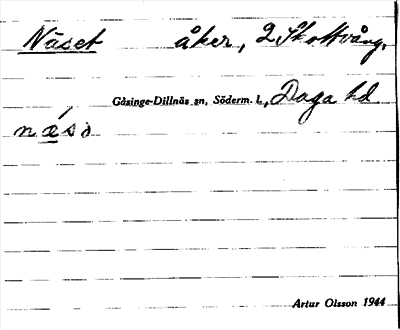 Näset åker, 2 Skottvång,
Gåsinge-Dillnäs sn, Söderm. l., Daga hd
næ´sə
Artur Olsson 1944